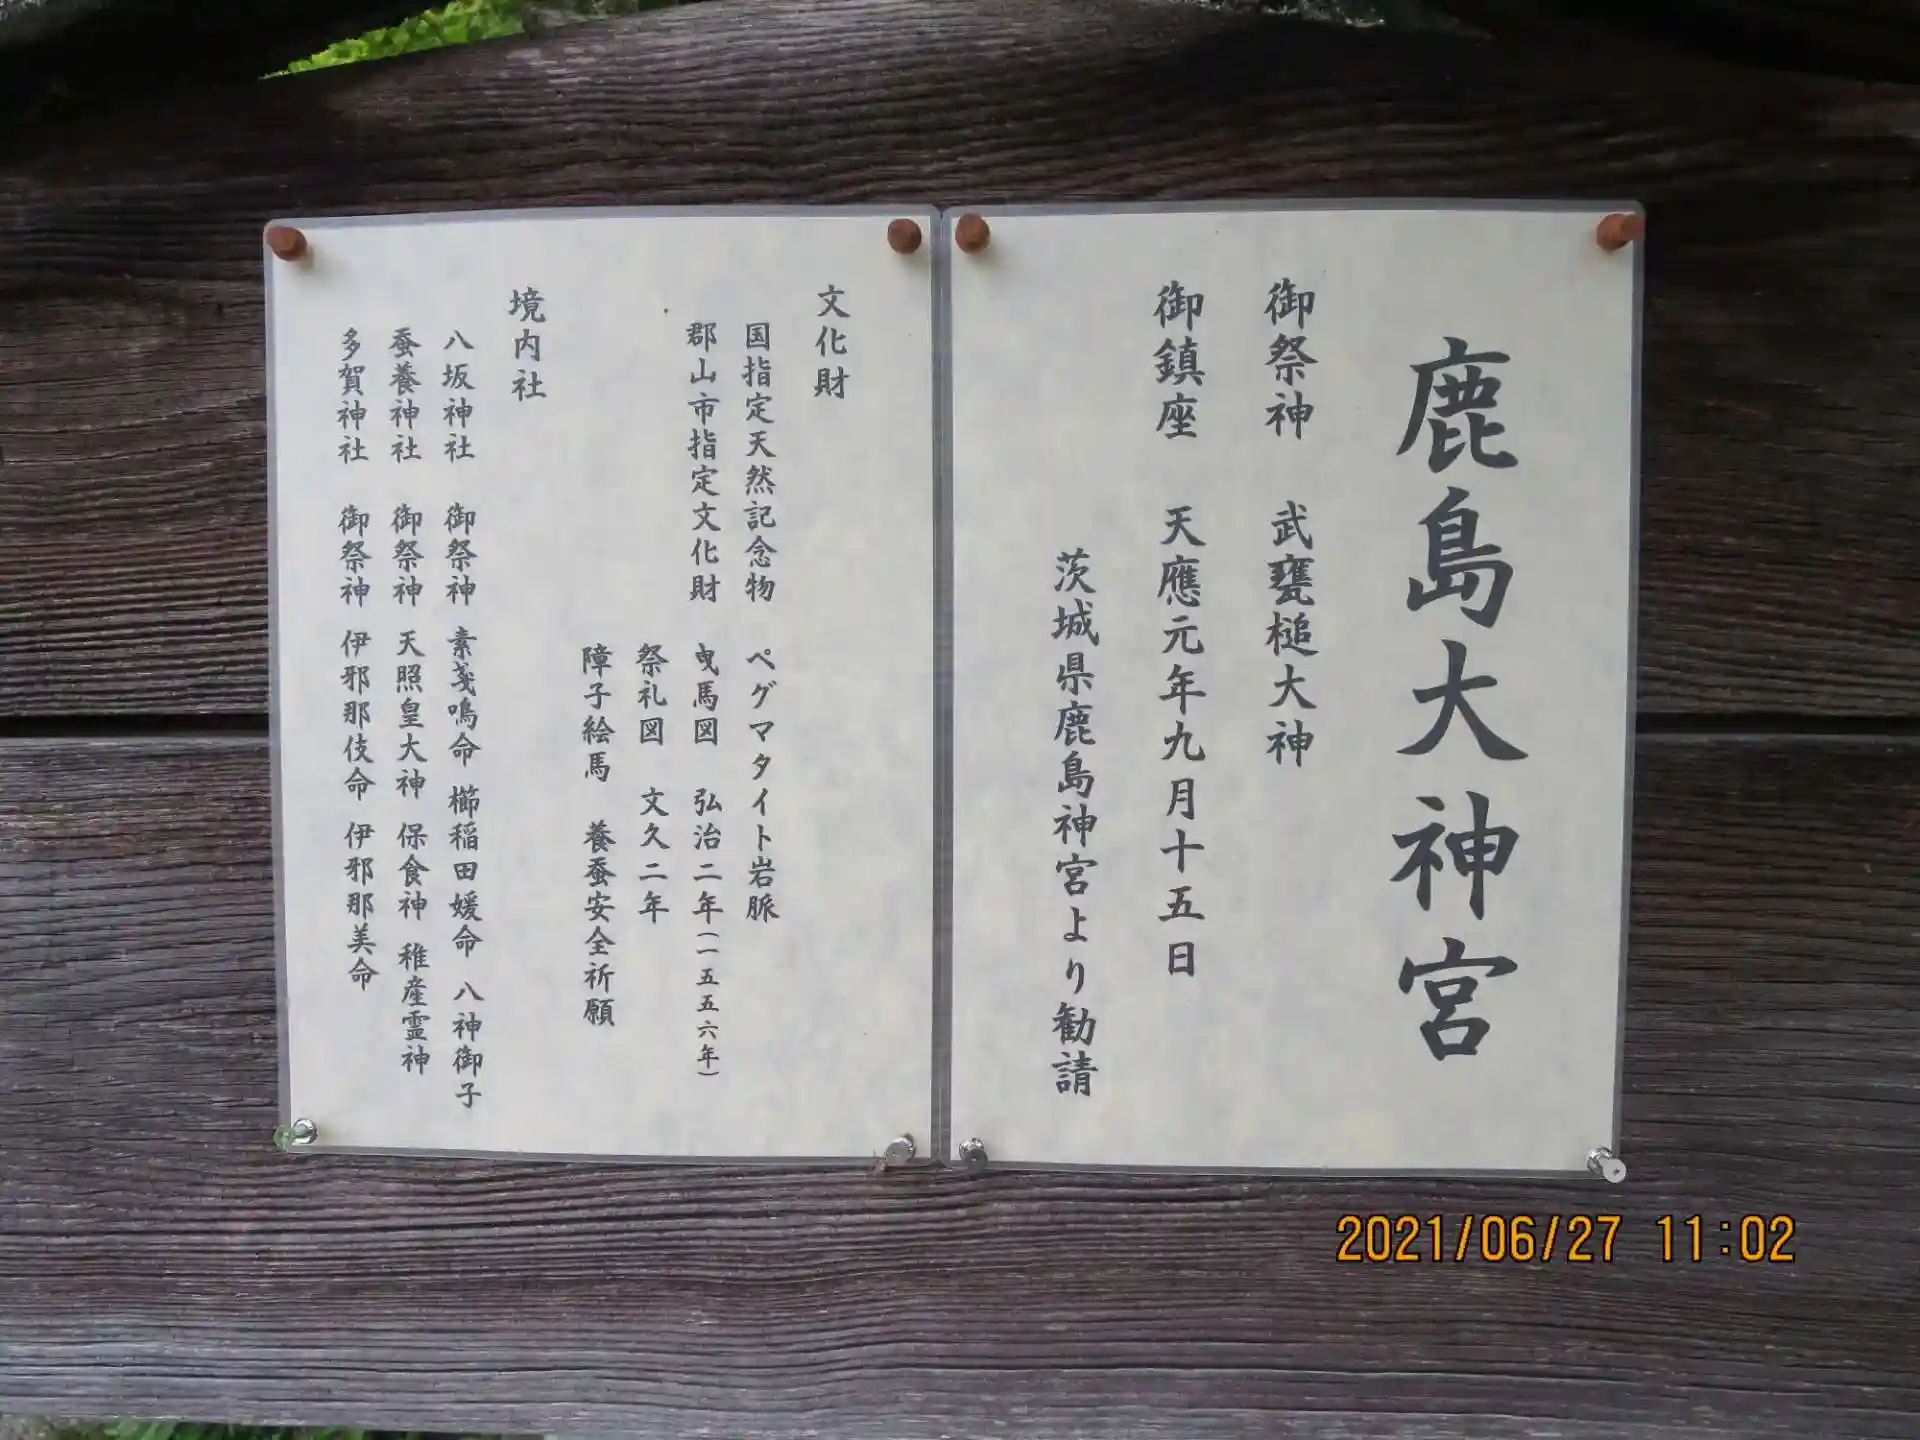 鹿島大神宮
御祭神　武甕槌大神
御鎮座　天應元年九月十五日
茨城県鹿島神宮より勧請
文化財
国指定天然記念物　ペグマタイト岩脈
郡山市指定文化財　曳馬図　弘治二年(一五五六年)
祭礼図　文久二年
障子絵馬　養蚕安全祈願
境内社
八坂神社　御祭神　素戔鳴命　櫛稲田媛命　八神御子
蚕養神社　御祭神　天照皇大神　保食神　稚産霊神
多賀神社　御祭神　伊邪那伎命　伊邪那美命
2021/06/27 11:02